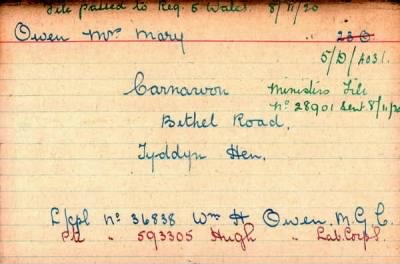 File passed to Reg. 5 Wales. 8/11/20
Owen Mrs Mary
5/D/4031.
Carnarvon Ministers File
No 28901 Sent 8/11/20
Bethel Road,
Tyddyn Hen,
L/cpl No 36838 Wm H Owen. M.G.C.
Pte " 593305 Hugh " Lab. Corps.